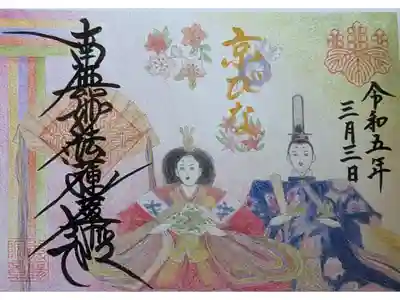 令和五年
三月三日
京ひな
南無妙法蓮華経